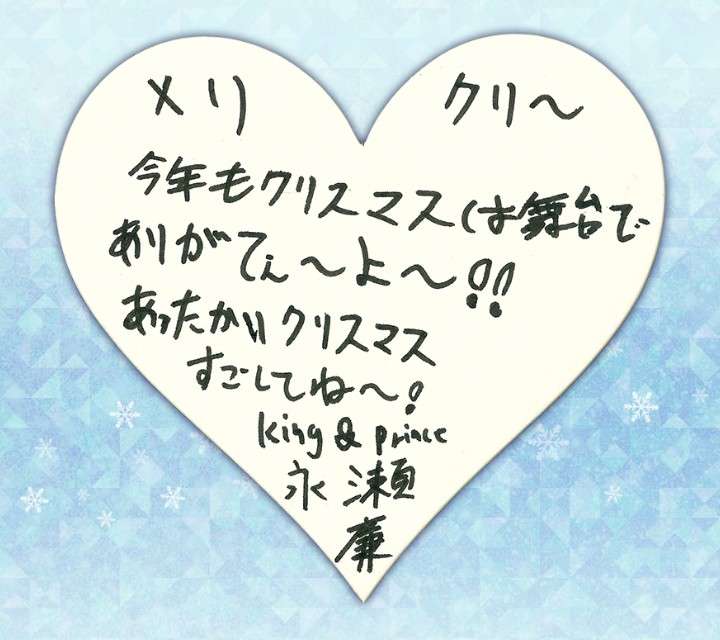 メリ クリ〜
今年もクリスマスは舞台で
ありがてぇ〜よ〜!!
あったかいクリスマス
すごしてね〜!
King & prince
永瀬
廉